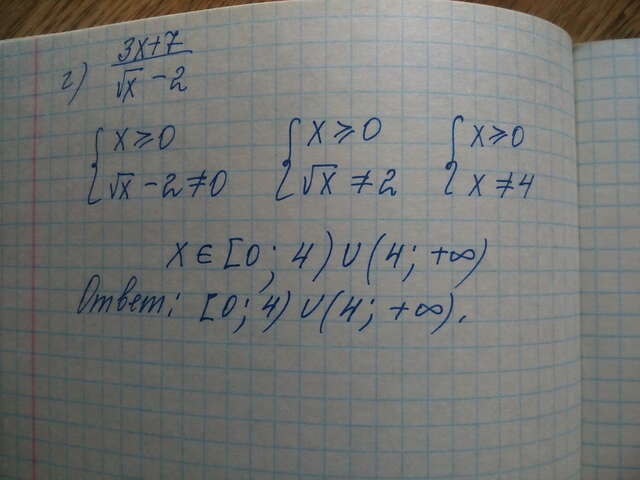 г) (3x+7)/(√x - 2)
{ x ≥ 0 { x ≥ 0 { x ≥ 0
{ √x - 2 ≠ 0 { √x ≠ 2 { x ≠ 4
x ∈ [0; 4) ∪ (4; +∞)
Ответ: [0; 4) ∪ (4; +∞).